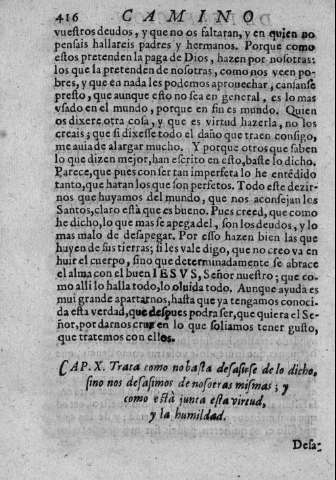 416 CAMINO
vuestros deudos, y que no os faltaran, y en quien no
pensais hallareis padres y hermanos. Porque como
estos pretenden la paga de Dios, hazen por nosotras:
los que la pretenden de nosotras, como nos veen po-
bres, y que en nada les podemos aprouechar, cansanse
presto, que aunque esto no sea en general, es lo mas
vsado en el mundo, porque en fin es mundo. Quien
os dixere otra cosa, y que es virtud hazerla, no los
creais; que si dixesse todo el daño que traen consigo,
me auia de alargar mucho. Y porque otros que saben
lo que dizen mejor, han escrito en esto, baste lo dicho.
Parece, que pues con ser tan imperfeta lo he entēdido
tanto, que haran los que son perfetos. Todo este dezir-
nos que huyamos del mundo, que nos aconsejan los
Santos, claro està que es bueno. Pues creed, que como
he dicho, lo que mas se apega del, son los deudos, y lo
mas malo de desapegar. Por esso hazen bien las que
huyen de sus tierras; si les vale digo, que no creo va en
huir el cuerpo, sino que determinadamente se abrace
el alma con el buen IESVS, Señor nuestro; que co-
mo alli lo halla todo, lo oluida todo. Aunque ayuda es
mui grande apartarnos, hasta que ya tengamos conoci-
da esta verdad, que despues podra ser, que quiera el Se-
ñor, por darnos cruz en lo que soliamos tener gusto,
que tratemos con ellos.
CAP. X. Trata como no basta desasirse de lo dicho,
sino nos desasimos de nosotras mismas; y
como està junta esta virtud,
y la humildad.
Desa-